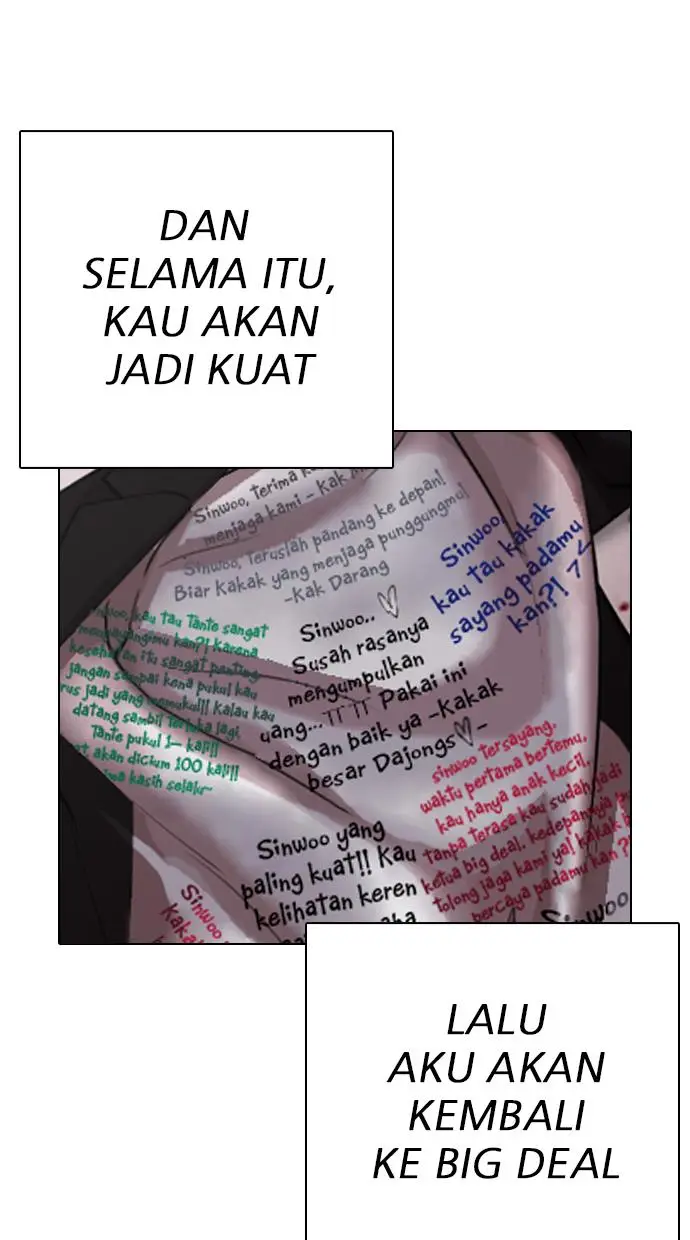 DAN
SELAMA ITU,
KAU AKAN
JADI KUAT
Sinwoo, Terima
menjaga kami - Kak
Sinwoo, Teruslah pandang ke depan!
Biar Kakak yang menjaga punggungmu!
-Kak Darang
Sinwoo,
kau tau kakak
sayang padamu
kan?!
kau tau Tante sangat
kan?! Karena
itu sangat penting
jangan sampai kena pukul kau
jadi yang memukul!! Kalau kau
datang sambil terluka lagi,
Tante pukul 1- kali!!
akan dicium 100 kali!!
kasih selalu~
Sinwoo.. ♡
Susah rasanya
mengumpulkan
uang...ㅠㅠ Pakai ini
dengan baik ya -Kakak
besar Dajongs♡-
sinwoo tersayang,
waktu pertama bertemu,
kau hanya anak kecil,
tanpa terasa kau sudah jadi
ketua big deal, kedepannya
tolong jaga kami ya! kakak
bercaya padamu kan ?!
Sinwoo yang
paling kuat!! Kau
kelihatan keren
Sinwoo
LALU
AKU AKAN
KEMBALI
KE BIG DEAL